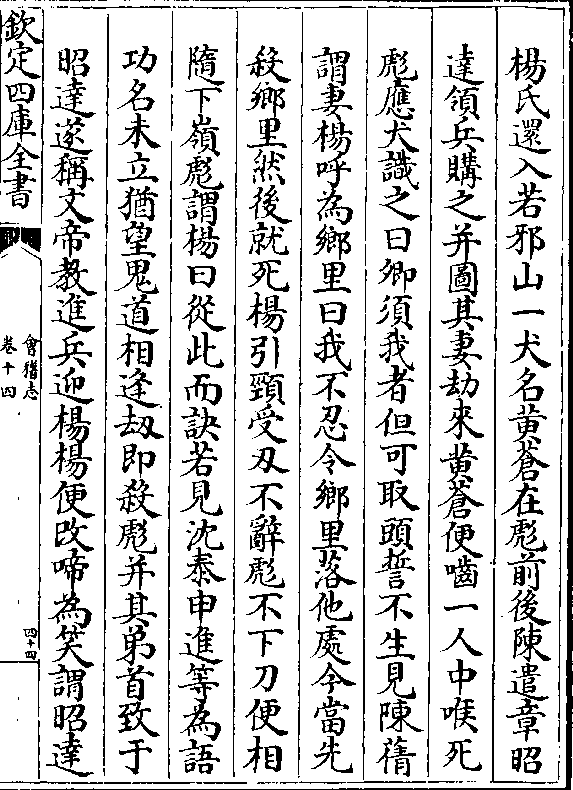 楊氏還入若邪山一犬名黄蒼在彪前後陳遣章昭
達領兵購之并圖其妻劫來黄蒼便嚙一人中喉死
彪應犬識之曰卿須我者但可取頭誓不生見陳蒨
謂妻楊呼為鄉里曰我不忍令鄉里落他處今當先
殺鄉里然後就死楊引頸受刄不辭彪不下刀便相
隨下嶺彪謂楊曰從此而訣若見沈泰申進等為語
功名未立猶望鬼道相逢刼即殺彪并其弟首致于
昭達遂稱文帝教進兵迎楊楊便改啼為笑謂昭達
欽定四庫全書
會稽志
卷十四
四十四